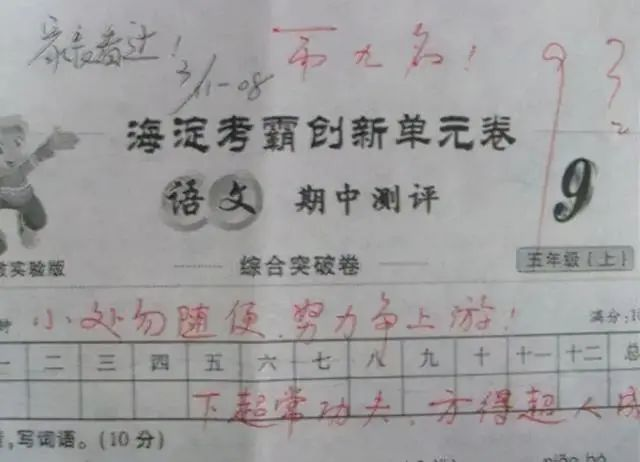 家长看过! 第九名! 93
3/11-08
海淀考霸创新单元卷
语文 期中测评 9
实验版 综合突破卷 五年级(上)
小处勿随便,努力争上游! 满分:10
一 二 三 四 五 六 七 八 九 十 十一 十二 总
下超常功夫,方得超人成
,写词语。(10分)